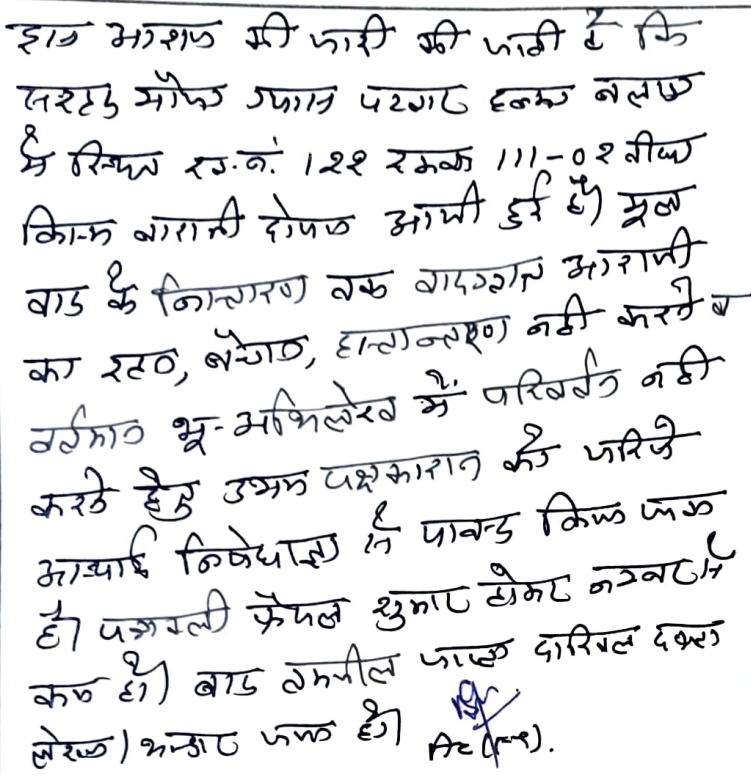 इस आशय की जारी की जाती है कि
सरहद मौजा ग्राम पटवार हल्का
में स्थित ख.नं. 122 रकबा 111-02 बीघा
किस्म बारानी दोयम आयी हुई है। मूल
वाद के निस्तारण तक वादग्रस्त आराजी
का रहन, बेचान, हस्तान्तरण नही करने व
वर्तमान भू-अभिलेख में परिवर्तन नही
करने हेतु उभय पक्षकारान को जरिये
अस्थाई निषेधाज्ञा से पाबन्द किया जाता
है। पत्रावली फैसल शुमार होकर नम्बर से
कम हो। बाद तकमील जाब्ता दाखिल दफ्तर
हो।